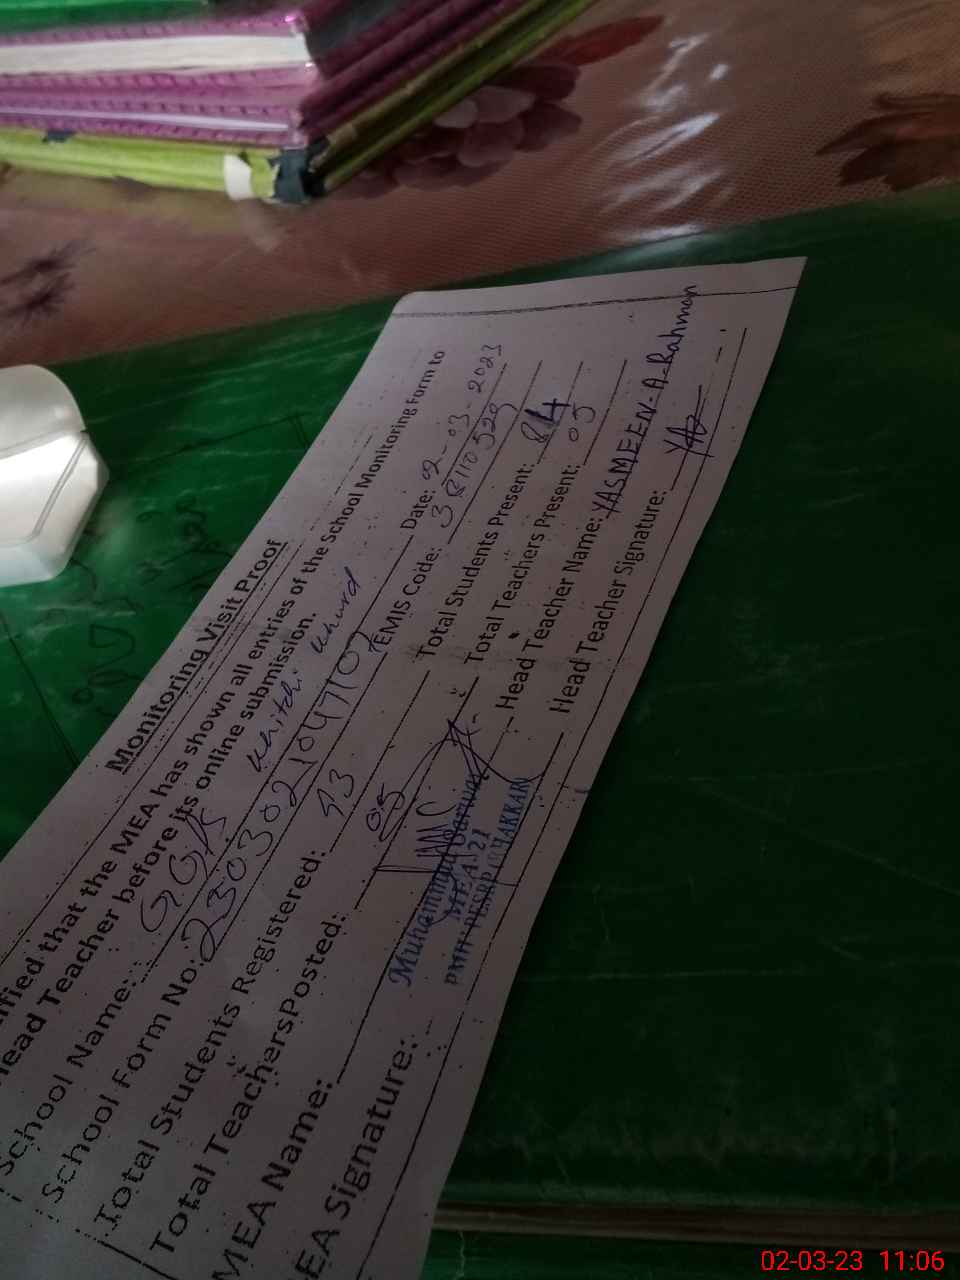 Monitoring Visit Proof
ified that the MEA has shown all entries of the School Monitoring Form to
Head Teacher before its online submission.
School Name: GGPS Khitchi Khurd Date: 02-03-2023
School Form No: 2303021047107 EMIS Code: 38110529
Total Students Registered: 93 Total Students Present: 84
Total Teachers Posted: 05 Total Teachers Present: 05
MEA Name: Muhammad Sarwar Head Teacher Name: YASMEEN-A-Rahman
MEA-21
EA Signature: Head Teacher Signature:
02-03-23 11:06